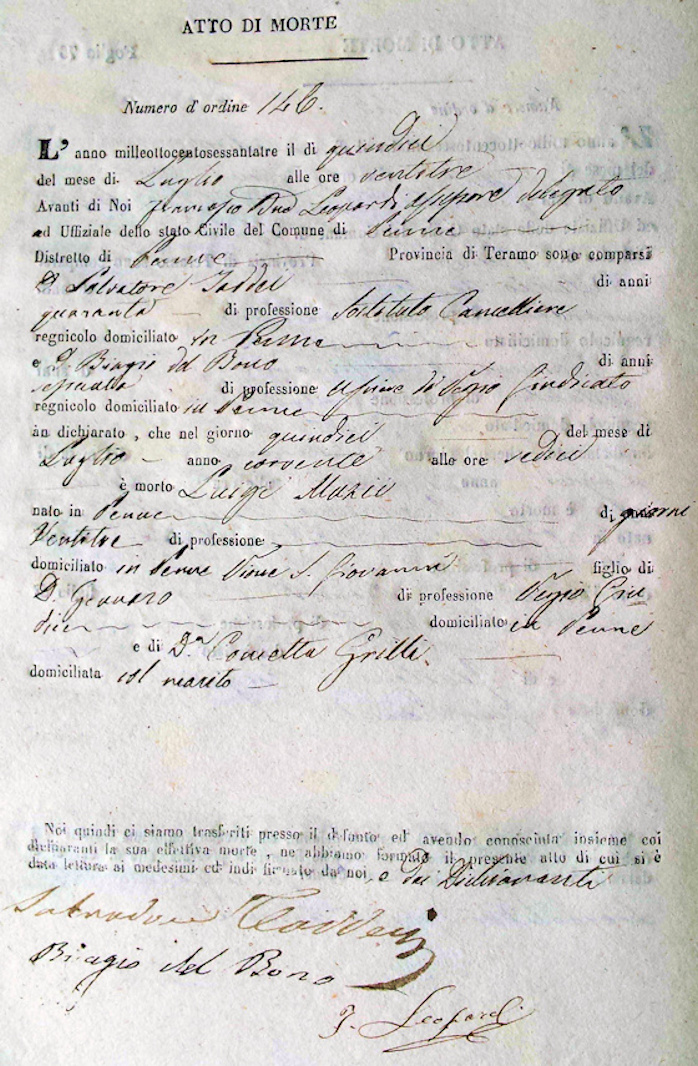 ATTO DI MORTE
Numero d' ordine 146.
L' anno milleottocentosessantatre il dì quindici
del mese di Luglio alle ore ventitre
Avanti di Noi Leopardi assessore delegato
ed Uffiziale dello stato Civile del Comune di Penne
Distretto di Penne Provincia di Teramo sono comparsi
D. Salvatore Taddei di anni
quaranta di professione Sostituto Cancelliere
regnicolo domiciliato in Penne
e D. Biagio del Bono di anni
di professione Usciere di Regio Giudicato
regnicolo domiciliato in Penne
àn dichiarato, che nel giorno quindici del mese di
Luglio anno corrente alle ore sedici
è morto Luigi Muzii
nato in Penne di anni giorni
Ventitre di professione
domiciliato in Penne S. Giovanni figlio di
D. Gennaro di professione Regio Giu
dice domiciliato in Penne
e di D.a Concetta Grilli.
domiciliata col marito
Noi quindi ci siamo trasferiti presso il defunto ed avendo conosciuta insieme coi
dichiaranti la sua effettiva morte, ne abbiamo formato il presente atto di cui si è
data lettura ai medesimi ed indi firmato da noi, e dai Dichiaranti
Salvadore Taddei
Biagio del Bono
F. Leopardi